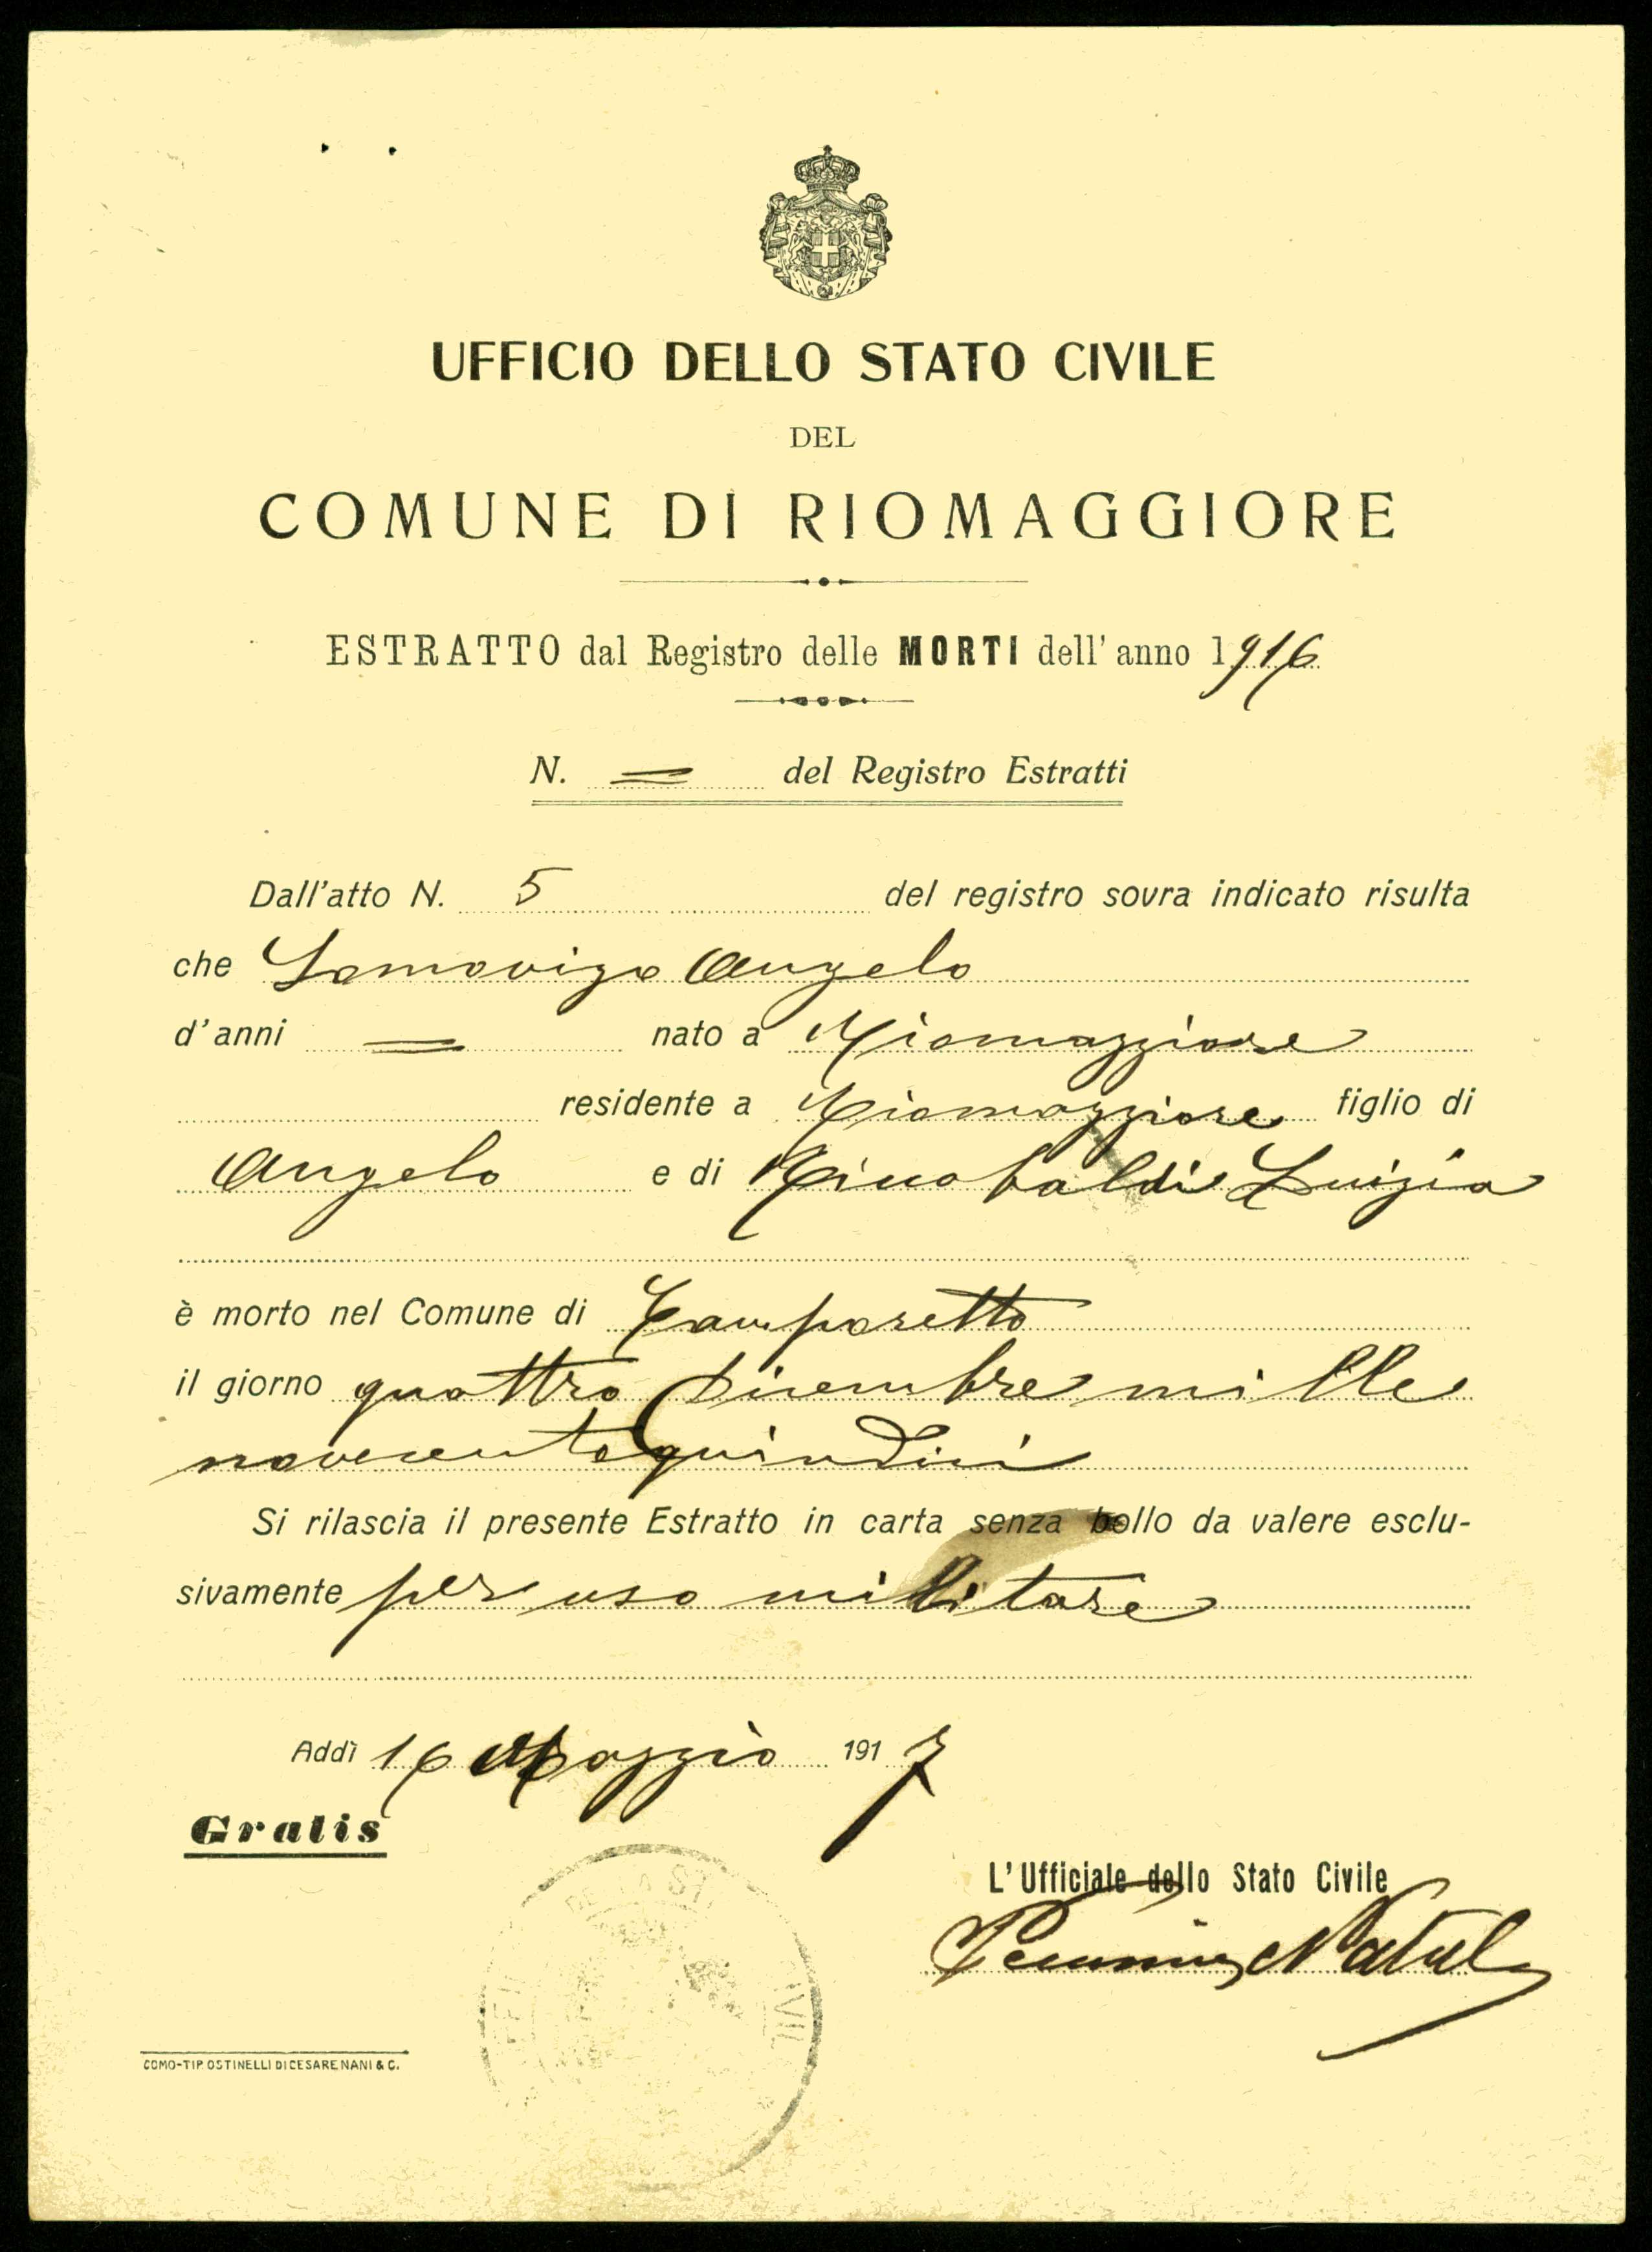 UFFICIO DELLO STATO CIVILE
DEL
COMUNE DI RIOMAGGIORE
ESTRATTO dal Registro delle MORTI dell'anno 1916
N. = del Registro Estratti
Dall'atto N. 5 del registro sovra indicato risulta
che Angelo
d'anni = nato a Riomaggiore
residente a Riomaggiore figlio di
Angelo e di Ricobaldi Luigia
è morto nel Comune di Camporetto
il giorno quattro Dicembre mille
novecentoquindici
Si rilascia il presente Estratto in carta senza bollo da valere esclu-
sivamente per uso militare
Addì 16 Maggio 1917
Gratis
L'Ufficiale dello Stato Civile
COMO-TIP. OSTINELLI DI CESARE NANI & C.